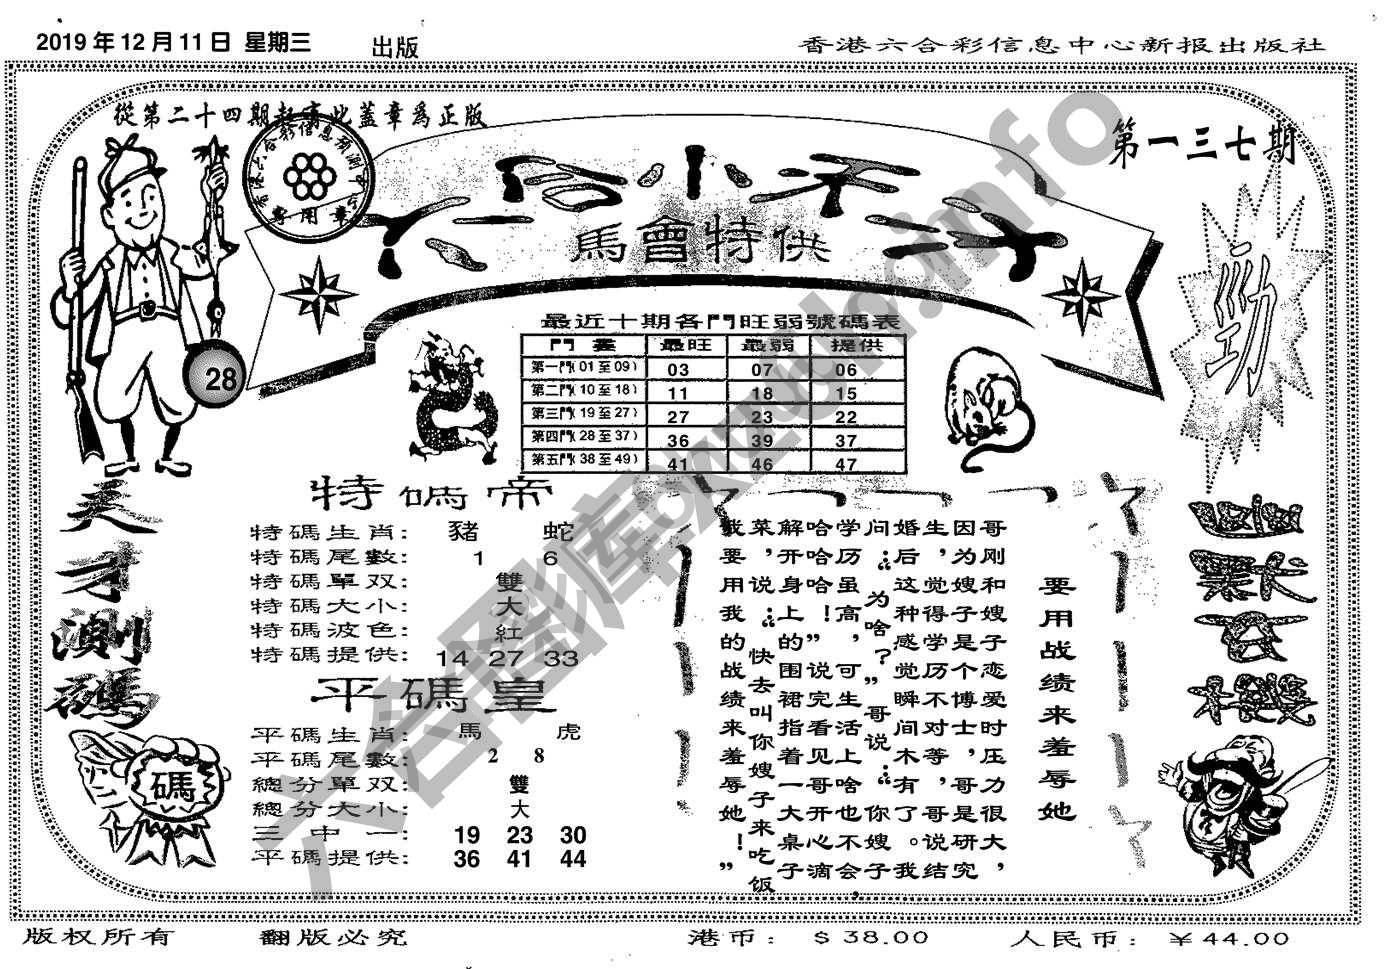 2019 年 12 月 11 日 星期三 出版
香港六合彩信息中心新报出版社
從第二十四期起 此蓋章爲正版
第一三七期
專用章
馬會特供
勁
28
最近十期各門旺弱號碼表
門 最旺 最弱 提供
第一門(01至09) 03 07 06
第二門(10至18) 11 18 15
第三門(19至27) 27 23 22
第四門(28至37) 36 39 37
第五門(38至49) 41 46 47
天才測碼
碼
特碼帝
特碼生肖: 豬 蛇
特碼尾數: 1 6
特碼單双: 雙
特碼大小: 大
特碼波色: 紅
特碼提供: 14 27 33
平碼皇
平碼生肖: 馬 虎
平碼尾數: 2 8
總分單双: 雙
總分大小: 大
三中一: 19 23 30
平碼提供: 36 41 44
要用战绩来羞辱她
哥刚和嫂子恋爱时压力很大,
因为嫂子是个博士,哥是研究
生,觉得学历不对等,哥说结
婚后这种感觉瞬间木有了。我
问:“为啥?”哥说:“你嫂子
学历虽高,可生活上啥也不会,
哈哈哈!”说完看见哥开心滴
解开身上的围裙指着一大桌子
菜,说:“快去叫你嫂子来吃饭
我要用我的战绩来羞辱她!”
版权所有 翻版必究 港币: $38.00 人民币: ¥44.00
六合圖库